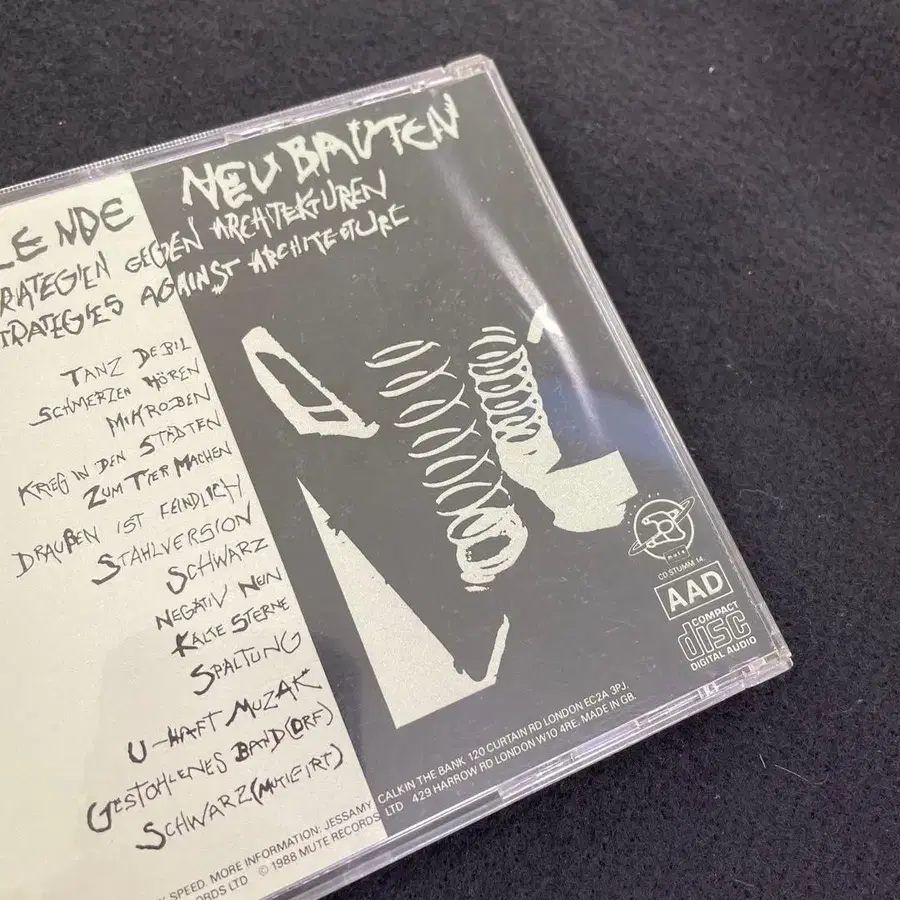 LENDE NEUBAUTEN
RATEGIEN GEGEN ARCHITEKTUREN
TRATEGIES AGAINST ARCHITECTURE
TANZ DEBIL
SCHMERZEN HÖREN
MIKROBEN
KRIEG IN DEN STÄDTEN
ZUM TIER MACHEN
DRAUßEN IST FEINDLICH
STAHLVERSION
SCHWARZ
NEGATIV NEIN
KALTE STERNE
SPALTUNG
U-HAFT MUZAK
GESTOHLENES BAND (ORF)
SCHWARZ (MUTIERT)
mute
CD STUMM 14
AAD
COMPACT
disc
DIGITAL AUDIO
Y SPEED. MORE INFORMATION: JESSAMY CALKIN THE BANK 120 CURTAIN RD LONDON EC2A 3PJ.
ORDS LTD © 1988 MUTE RECORDS LTD 429 HARROW RD LONDON W10 4RE. MADE IN GB.